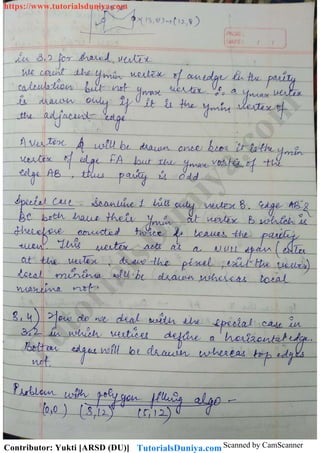 https://www.tutorialsduniya.com
in 3.2 for shared vertex
We count the ymin vertex of an edge in the parity
calculation but not ymax vertex i.e. a ymax vertex
is drawn only if it is the ymin vertex of
the adjacent edge
A vertex A will be drawn once bcoz it is the ymin
vertex of edge FA but the ymax vertex of the
edge AB, thus parity is odd
Special case - Scanline 1 hits only vertex B. Edge AB &
BC both have their ymin at vertex B which is
therefore counted twice & leaves the parity
even. This vertex acts as a NULL span (enter
at the vertex, draw the pixel, exit the vertex)
local minima will be drawn whereas local
maxima not.
3.4) How do we deal with the special case in
3.2 in which vertices define a horizontal edge.
Bottom edges will be drawn whereas top edges
not.
Problem with polygon filling algo -
(0,0) (3,12) (5,12)
Contributor: Yukti [ARSD (DU)] TutorialsDuniya.com Scanned by CamScanner